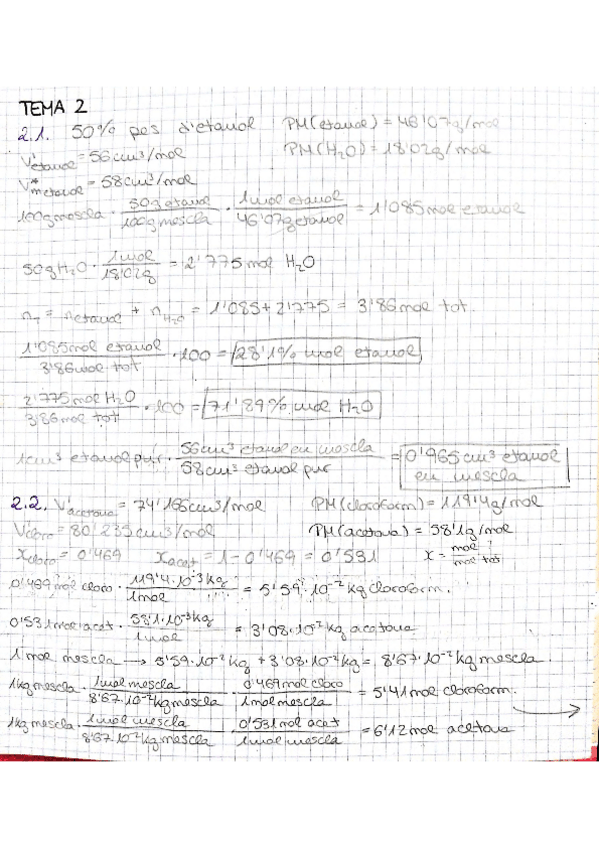 TEMA 2
2.1. 50% pes d'etanol PM(etanol) = 46'07g/mol
V'etanol = 56cm³/mol PM(H₂O) = 18'02g/mol
V*metanol = 58cm³/mol
100g mescla · 50g etanol/100g mescla · 1mol etanol/46'07g etanol = 1'085mol etanol
50g H₂O · 1mol/18'02g = 2'775mol H₂O
n_T = n_etanol + n_H₂O = 1'085 + 2'775 = 3'86mol tot.
1'085mol etanol/3'86mol tot · 100 = 28'1% mol etanol
2'775mol H₂O/3'86mol tot · 100 = 71'89% mol H₂O
1cm³ etanol pur · 56cm³ etanol en mescla/58cm³ etanol pur = 0'965cm³ etanol en mescla
2.2. V'acetona = 74'166cm³/mol PM(cloroform) = 119'4g/mol
V'cloro = 80'235cm³/mol PM(acetona) = 58'1g/mol
Xcloro = 0'469 Xacet = 1 - 0'469 = 0'531 x = mol/mol tot
0'469mol cloro · 119'4·10⁻³kg/1mol = 5'59·10⁻²kg cloroform.
0'531mol acet · 58'1·10⁻³kg/1mol = 3'08·10⁻²kg acetona
1mol mescla → 5'59·10⁻²kg + 3'08·10⁻²kg = 8'67·10⁻²kg mescla.
1kg mescla · 1mol mescla/8'67·10⁻²kg mescla · 0'469mol cloro/1mol mescla = 5'41mol cloroform.
1kg mescla · 1mol mescla/8'67·10⁻²kg mescla · 0'531mol acet/1mol mescla = 6'12mol acetona